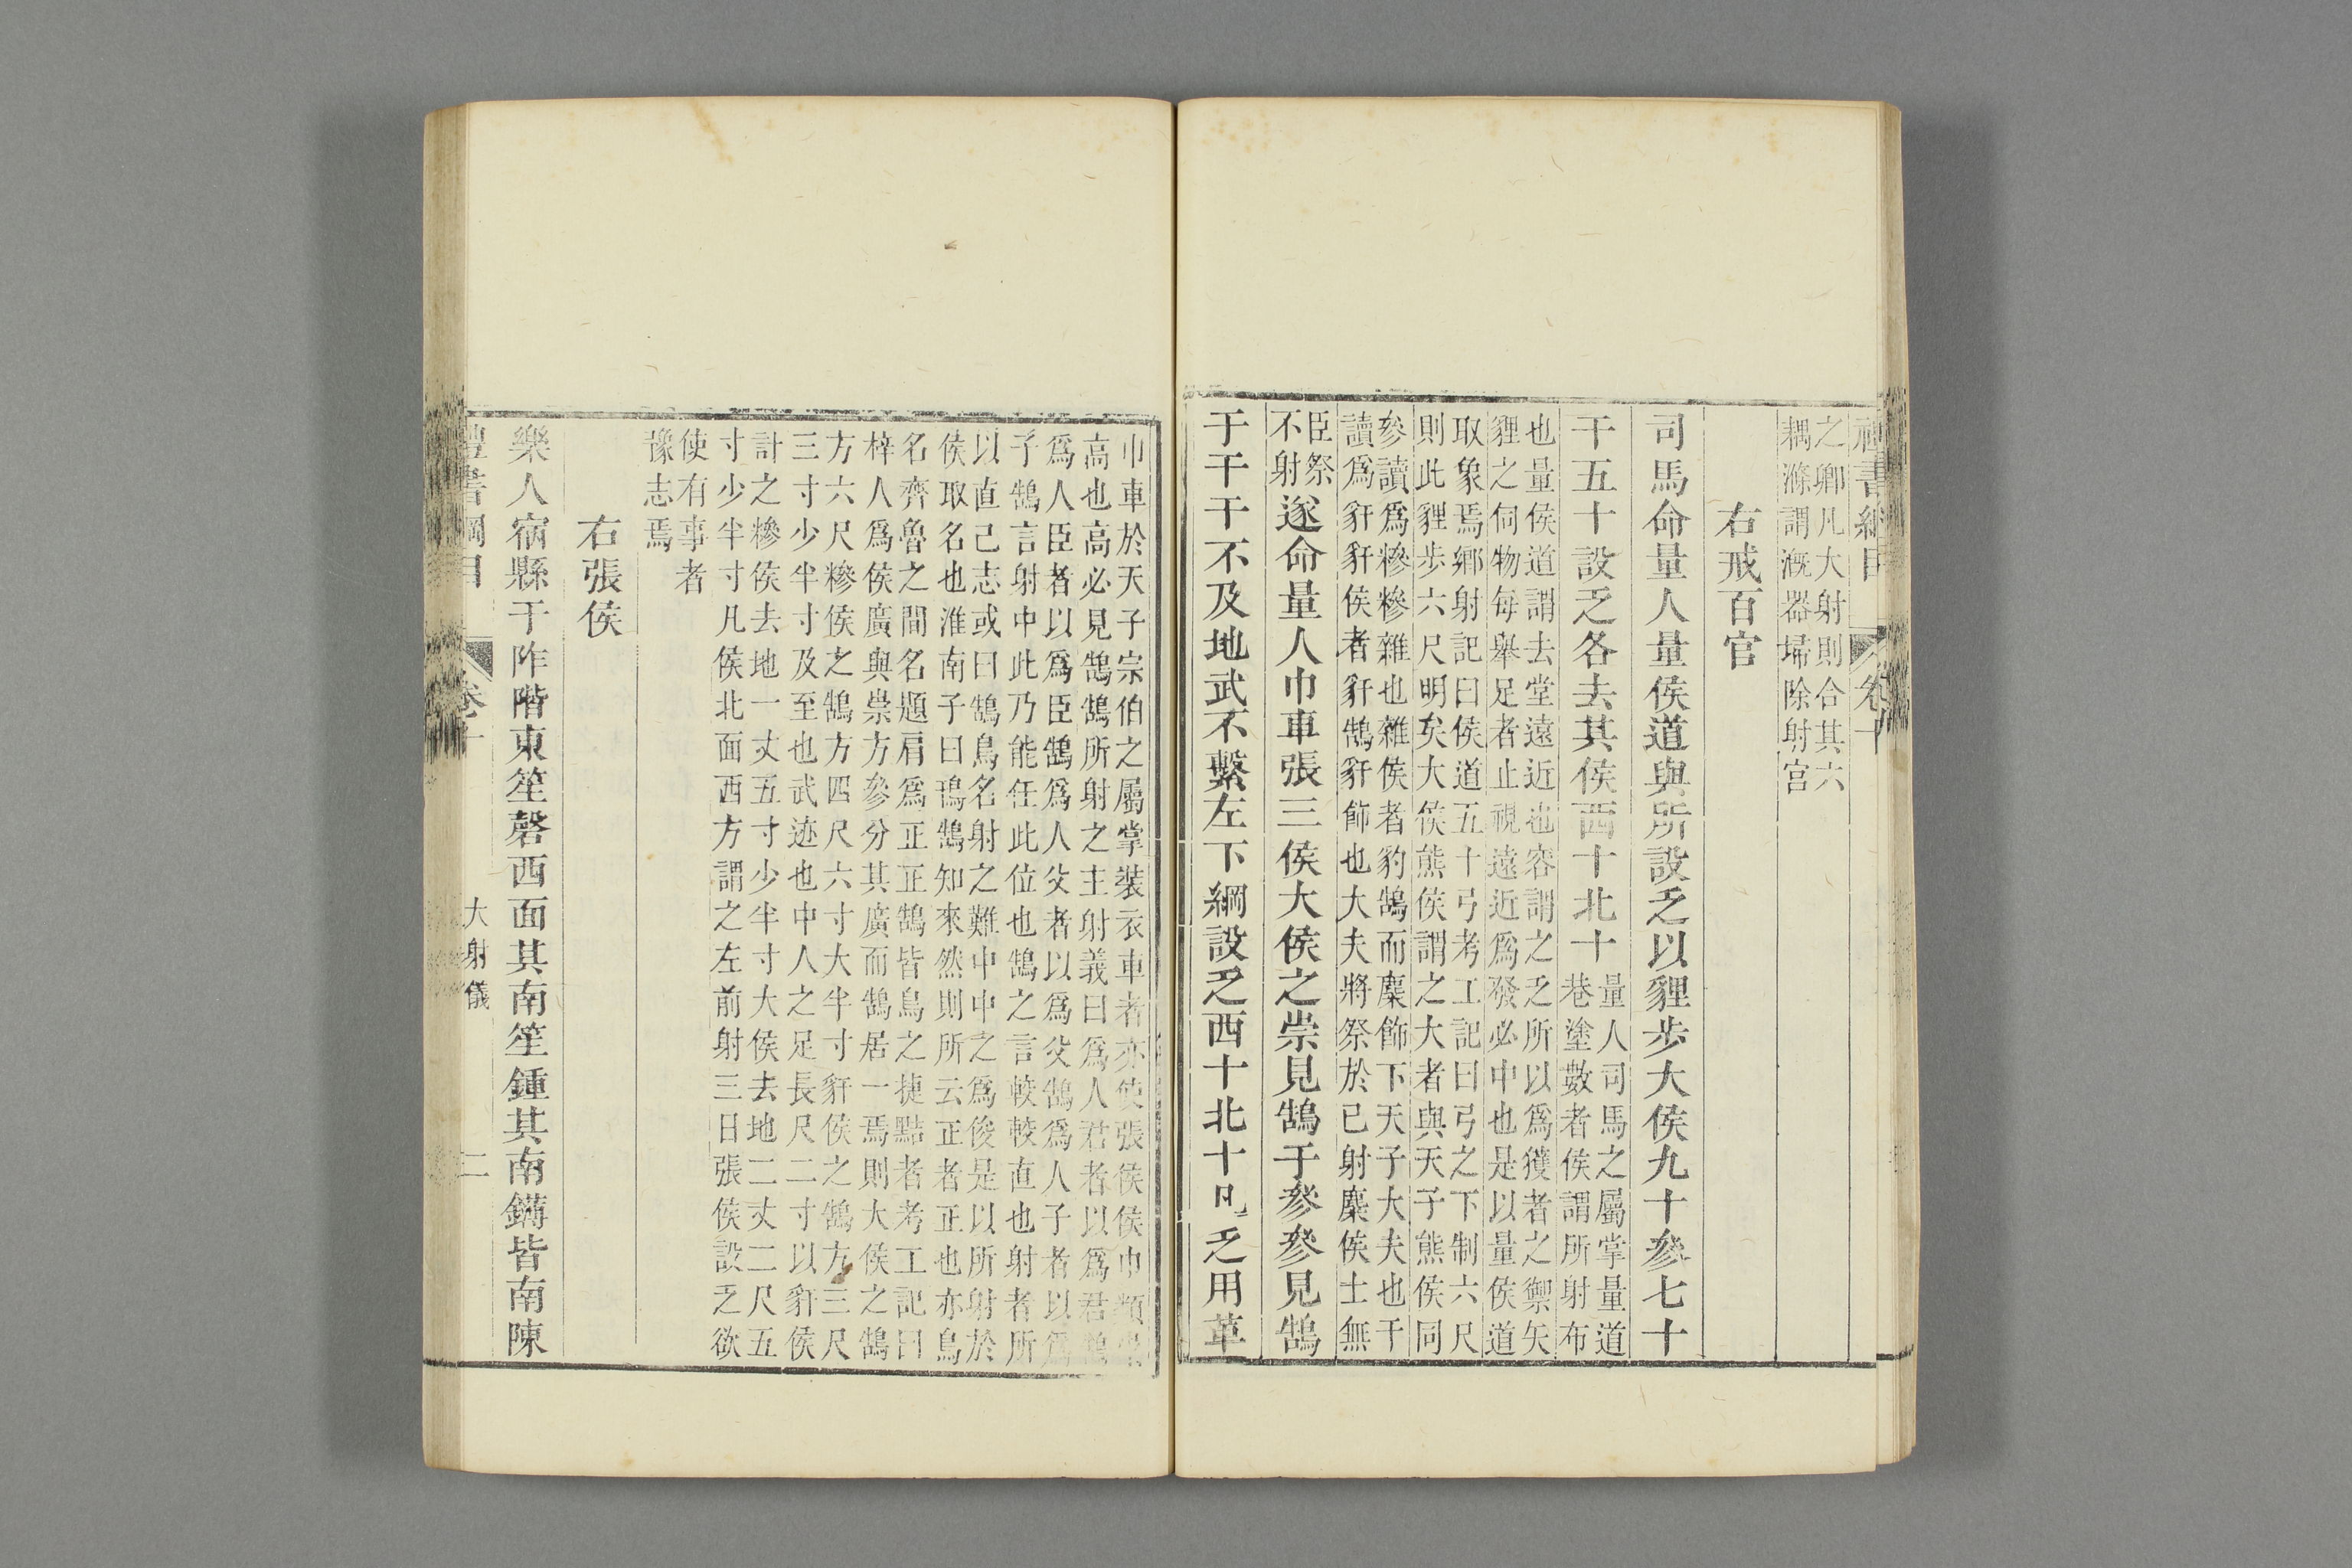 禮書綱目 卷十
之卿凡大射則合其六
耦滌謂溉器埽除射宮
右戒百官
司馬命量人量侯道與所設乏以貍步大侯九十參七十
干五十設乏各去其侯西十北十
量人司馬之屬掌量道
巷塗數者侯謂所射布
也量侯道謂去堂遠近也容謂之乏所以爲獲者之禦矢
貍之伺物每舉足者止視遠近爲發必中也是以量侯道
取象焉鄉射記曰侯道五十弓考工記曰弓之下制六尺
則此貍步六尺明矣大侯熊侯謂之大者與天子熊侯同
參讀爲糝糝雜也雜侯者豹鵠而麋飾下天子大夫也干
讀爲豻豻侯者豻鵠豻飾也大夫將祭於已射麋侯士無
臣祭
不射
遂命量人巾車張三侯大侯之崇見鵠于參參見鵠
于干干不及地武不繫左下綱設乏西十北十凡乏用革
巾車於天子宗伯之屬掌裝衣車者亦使張侯侯巾類崇
高也高必見鵠鵠所射之主射義曰爲人君者以爲君鵠
爲人臣者以爲臣鵠爲人父者以爲父鵠爲人子者以爲
子鵠言射中此乃能任此位也鵠之言較較直也射者所
以直己志或曰鵠鳥名射之難中中之爲俊是以所射於
侯取名也淮南子曰鳱鵠知來然則所云正者正也亦鳥
名齊魯之間名題肩爲正正鵠皆鳥之捷黠者考工記曰
梓人爲侯廣與崇方參分其廣而鵠居一焉則大侯之鵠
方六尺糝侯之鵠方四尺六寸大半寸豻侯之鵠方三尺
三寸少半寸及至也武迹也中人之足長尺二寸以豻侯
計之糝侯去地一丈五寸少半寸大侯去地二丈二尺五
寸少半寸凡侯北面西方謂之左前射三日張侯設乏欲
使有事者
豫志焉
右張侯
樂人宿縣于阼階東笙磬西面其南笙鍾其南鑮皆南陳
禮書綱目 卷十 大射儀 二